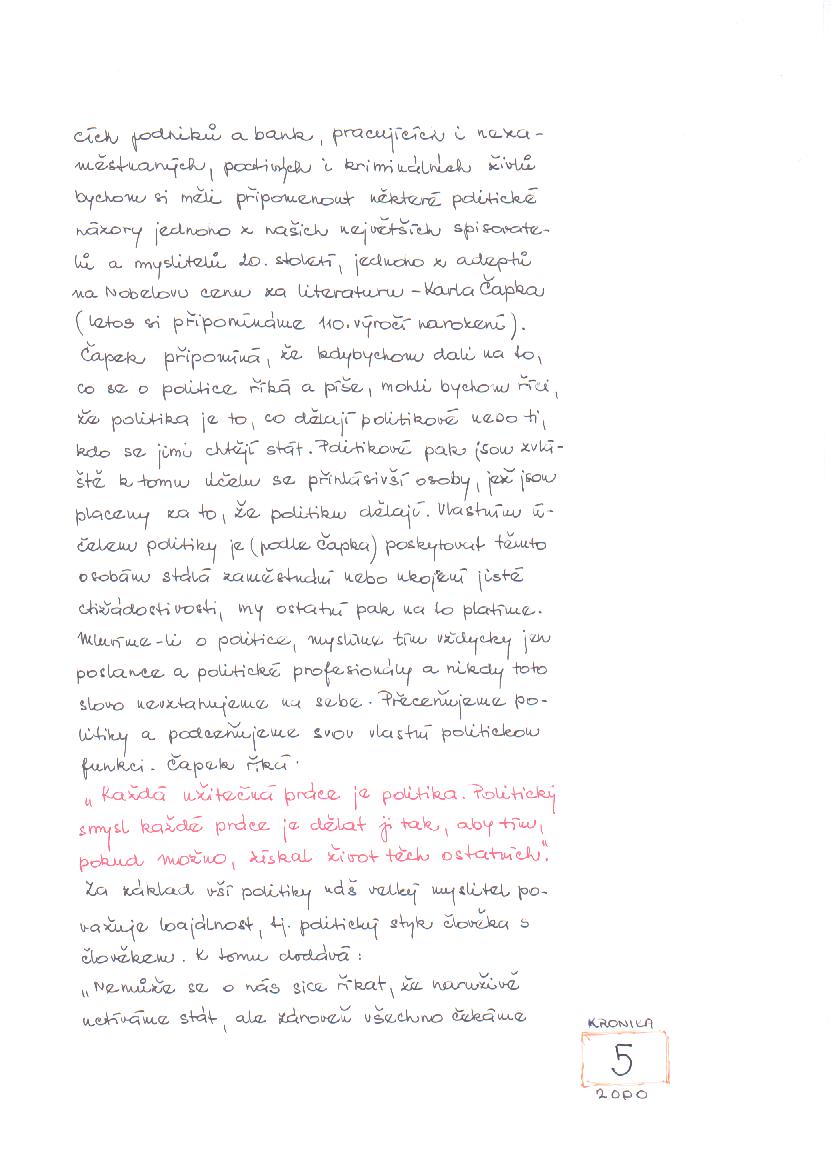 cích podniků a bank, pracujících i neza-
městnaných, poctivých i kriminálních živlů
bychom si měli připomenout některé politické
názory jednoho z našich největších spisovate-
lů a myslitelů 20. století, jednoho z adeptů
na Nobelovu cenu za literaturu - Karla Čapka
(letos si připomínáme 110. výročí narození).
Čapek připomíná, že kdybychom dali na to,
co se o politice říká a píše, mohli bychom říci,
že politika je to, co dělají politikové nebo ti,
kdo se jimi chtějí stát. Politikové pak jsou zvlá-
ště k tomu účelu se přihlásivší osoby, jež jsou
placeny za to, že politiku dělají. Vlastním ú-
čelem politiky je (podle Čapka) poskytovat těmto
osobám stálá zaměstnání nebo ukojení jisté
ctižádostivosti, my ostatní pak na to platíme.
Mluvíme-li o politice, myslíme tím vždycky jen
poslance a politické profesionály a nikdy toto
slovo nevztahujeme na sebe. Přeceňujeme po-
litiky a podceňujeme svou vlastní politickou
funkci. Čapek říká:
„Každá užitečná práce je politika. Politický
smysl každé práce je dělat ji tak, aby tím,
pokud možno, získal život těch ostatních".
Za základ vší politiky náš velký myslitel po-
važuje loajálnost, tj. politický styk člověka s
člověkem. K tomu dodává:
„Nemůže se o nás sice říkat, že naruživě
uctíváme stát, ale zároveň všechno čekáme
KRONIKA
5
2000